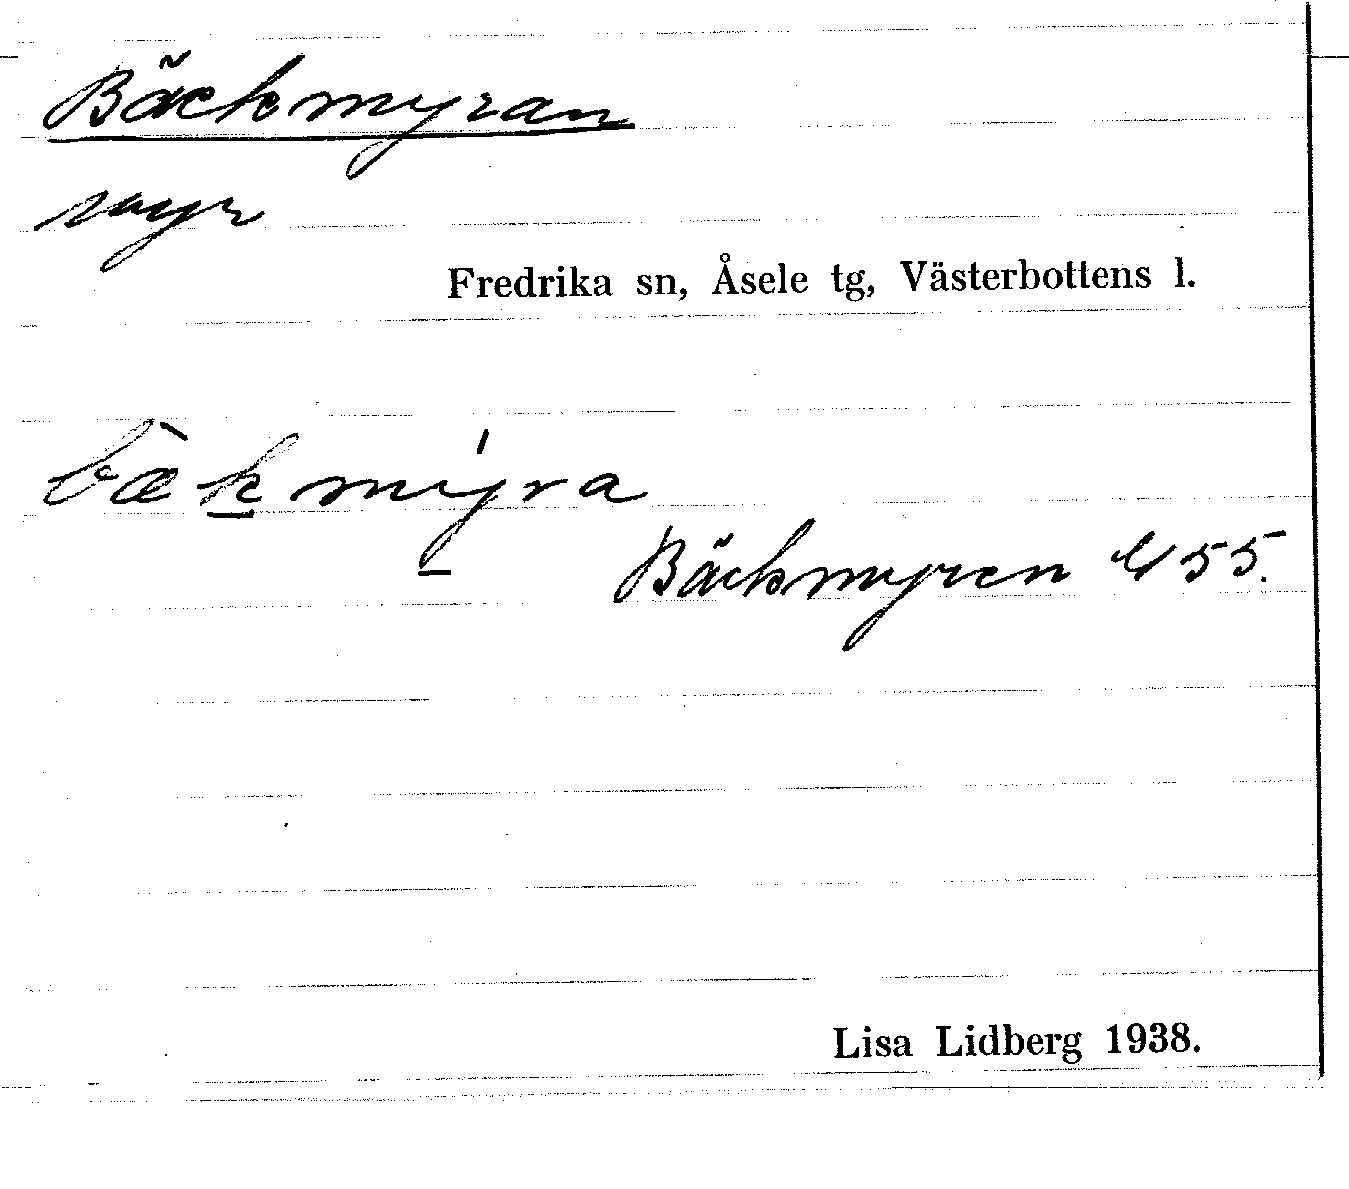 Bäckmyran
myr
Fredrika sn, Åsele tg, Västerbottens l.
bæ̀kmýra
Bäckmyren 55.
Lisa Lidberg 1938.